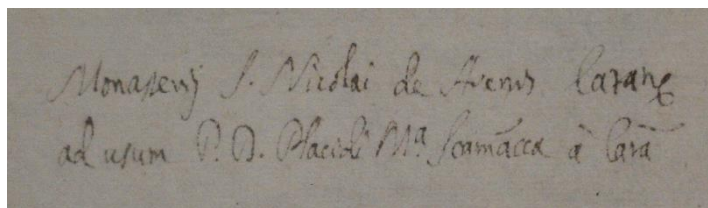 Monasterij S. Nicolai de Arenis Catanę
ad usum P. D. Placidi Mª Scam̄acca à Catā